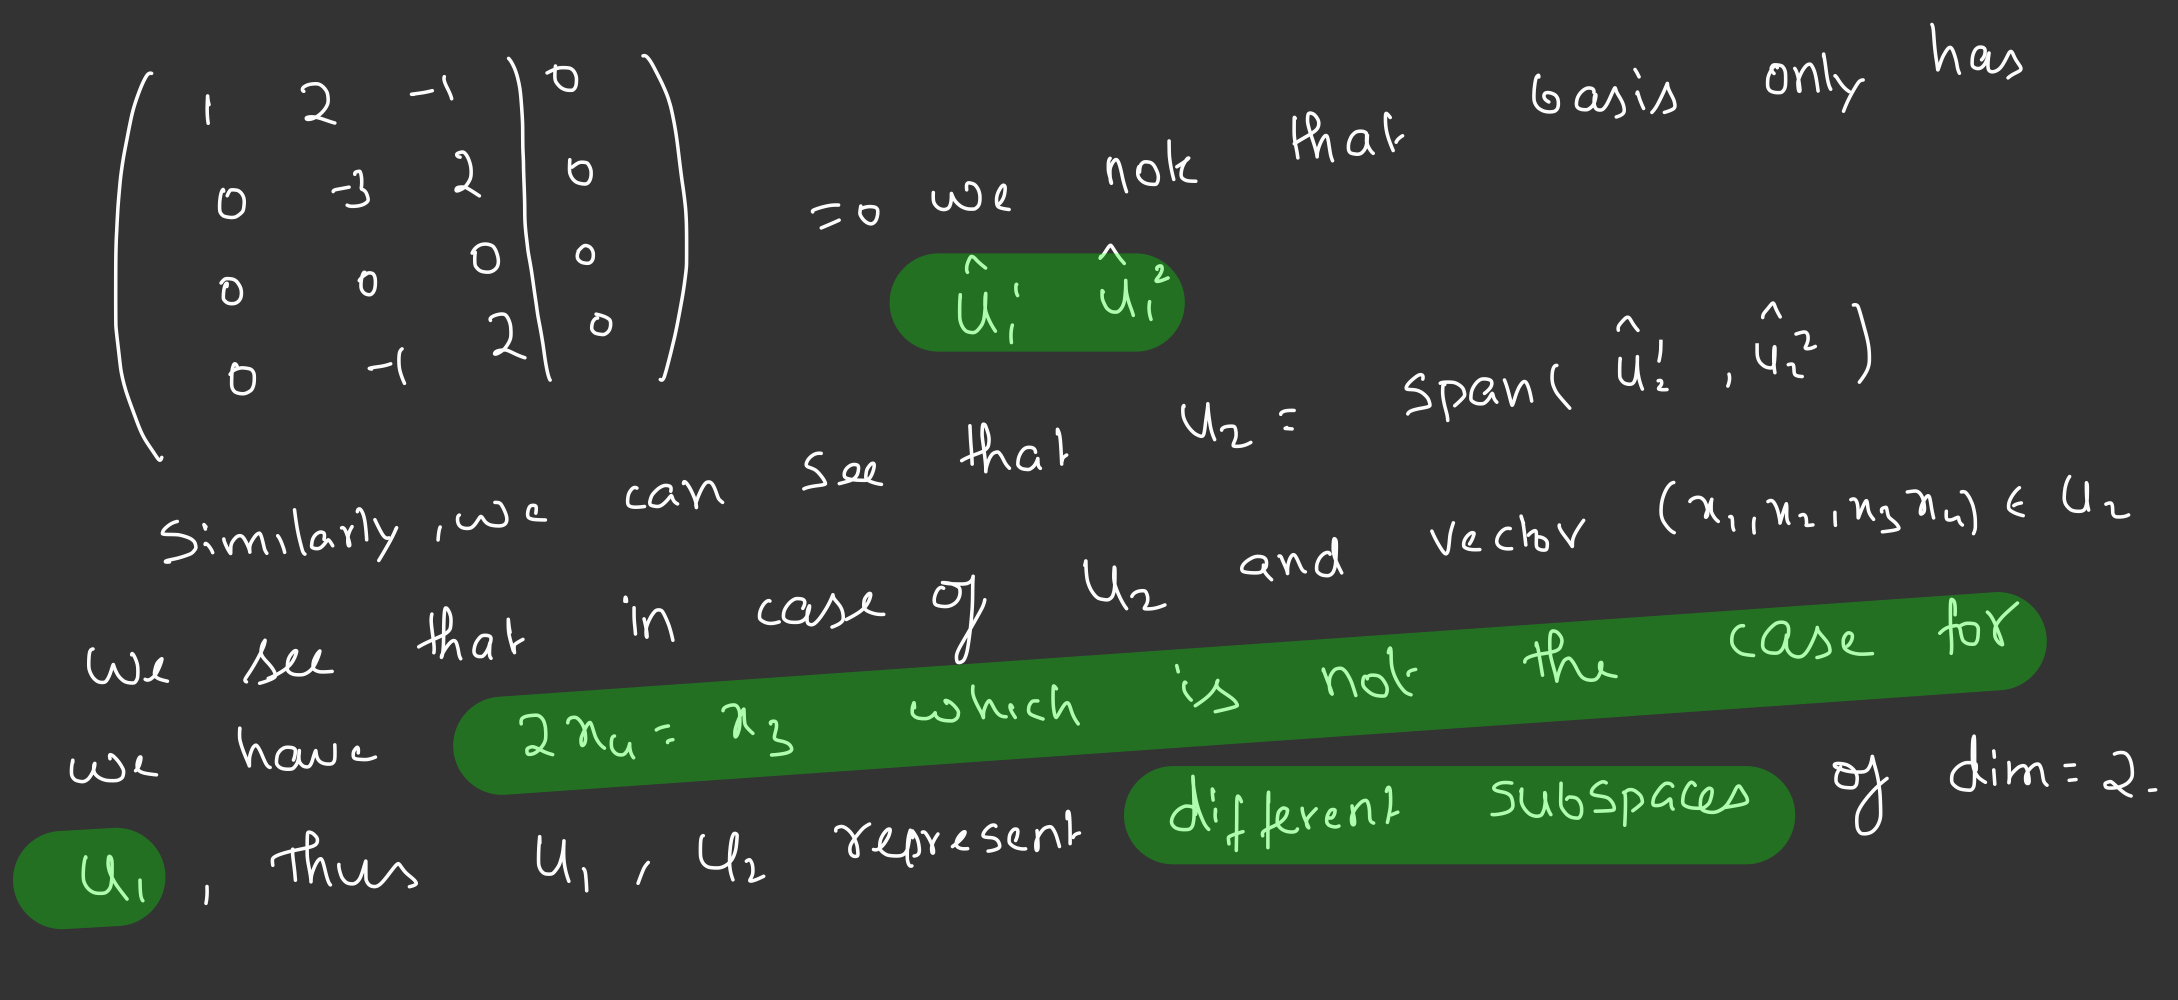 1 2 -1 | 0
0 -3 2 | 0
0 0 0 | 0
0 -1 2 | 0
=0 we note that basis only has
û₁¹ û₁²
Similarly, we can see that U₂ = span( û₂¹ , û₂² )
we see that in case of U₂ and vector (x₁, x₂, x₃ x₄) ∈ U₂
we have 2x₄ = x₃ which is not the case for
U₁, thus U₁, U₂ represent different subspaces of dim = 2.